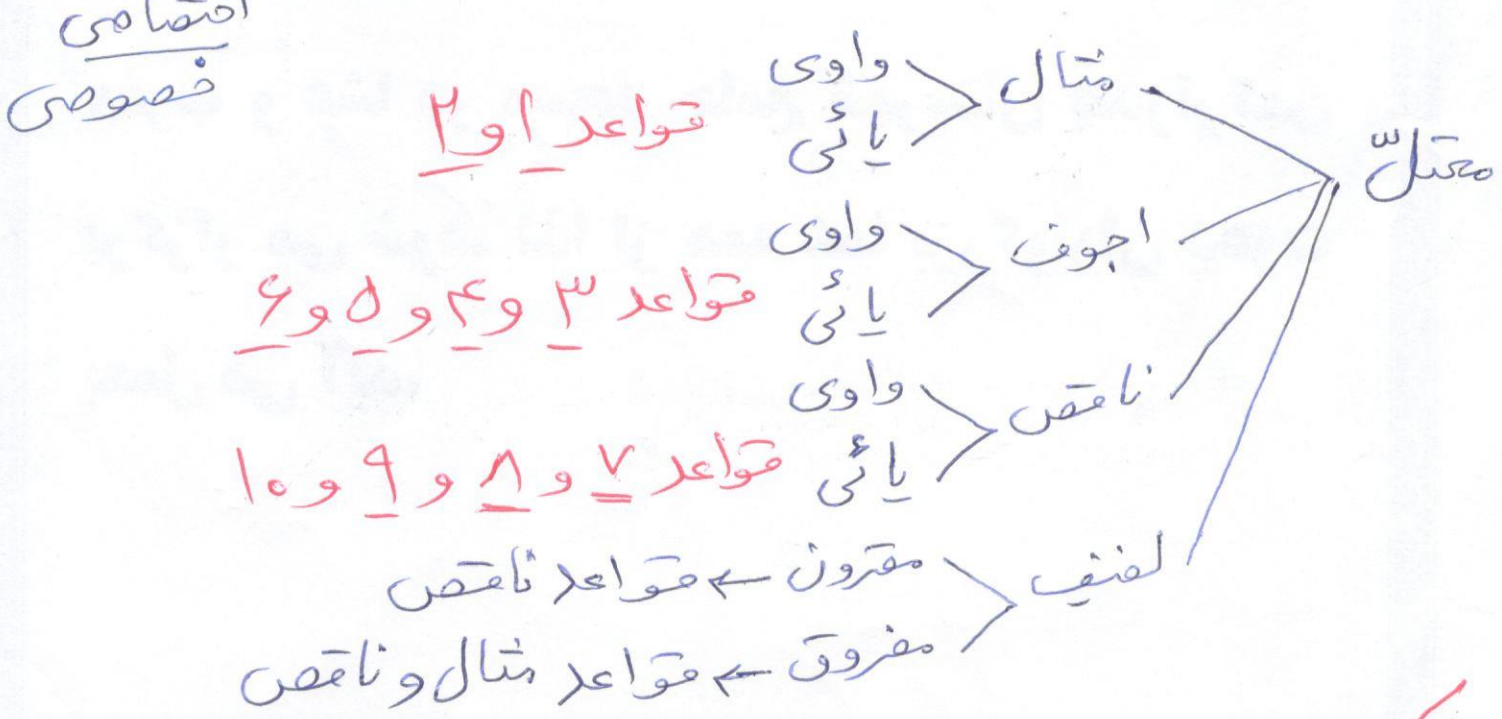 اختصاصی
خصوصی
معتلّ
مثال
واوی
یائی
قواعد ۱ و ۲
اجوف
واوی
یائی
قواعد ۳ و ۴ و ۵ و ۶
ناقص
واوی
یائی
قواعد ۷ و ۸ و ۹ و ۱۰
لفیف
مقرون ← قواعد ناقص
مفروق ← قواعد مثال و ناقص